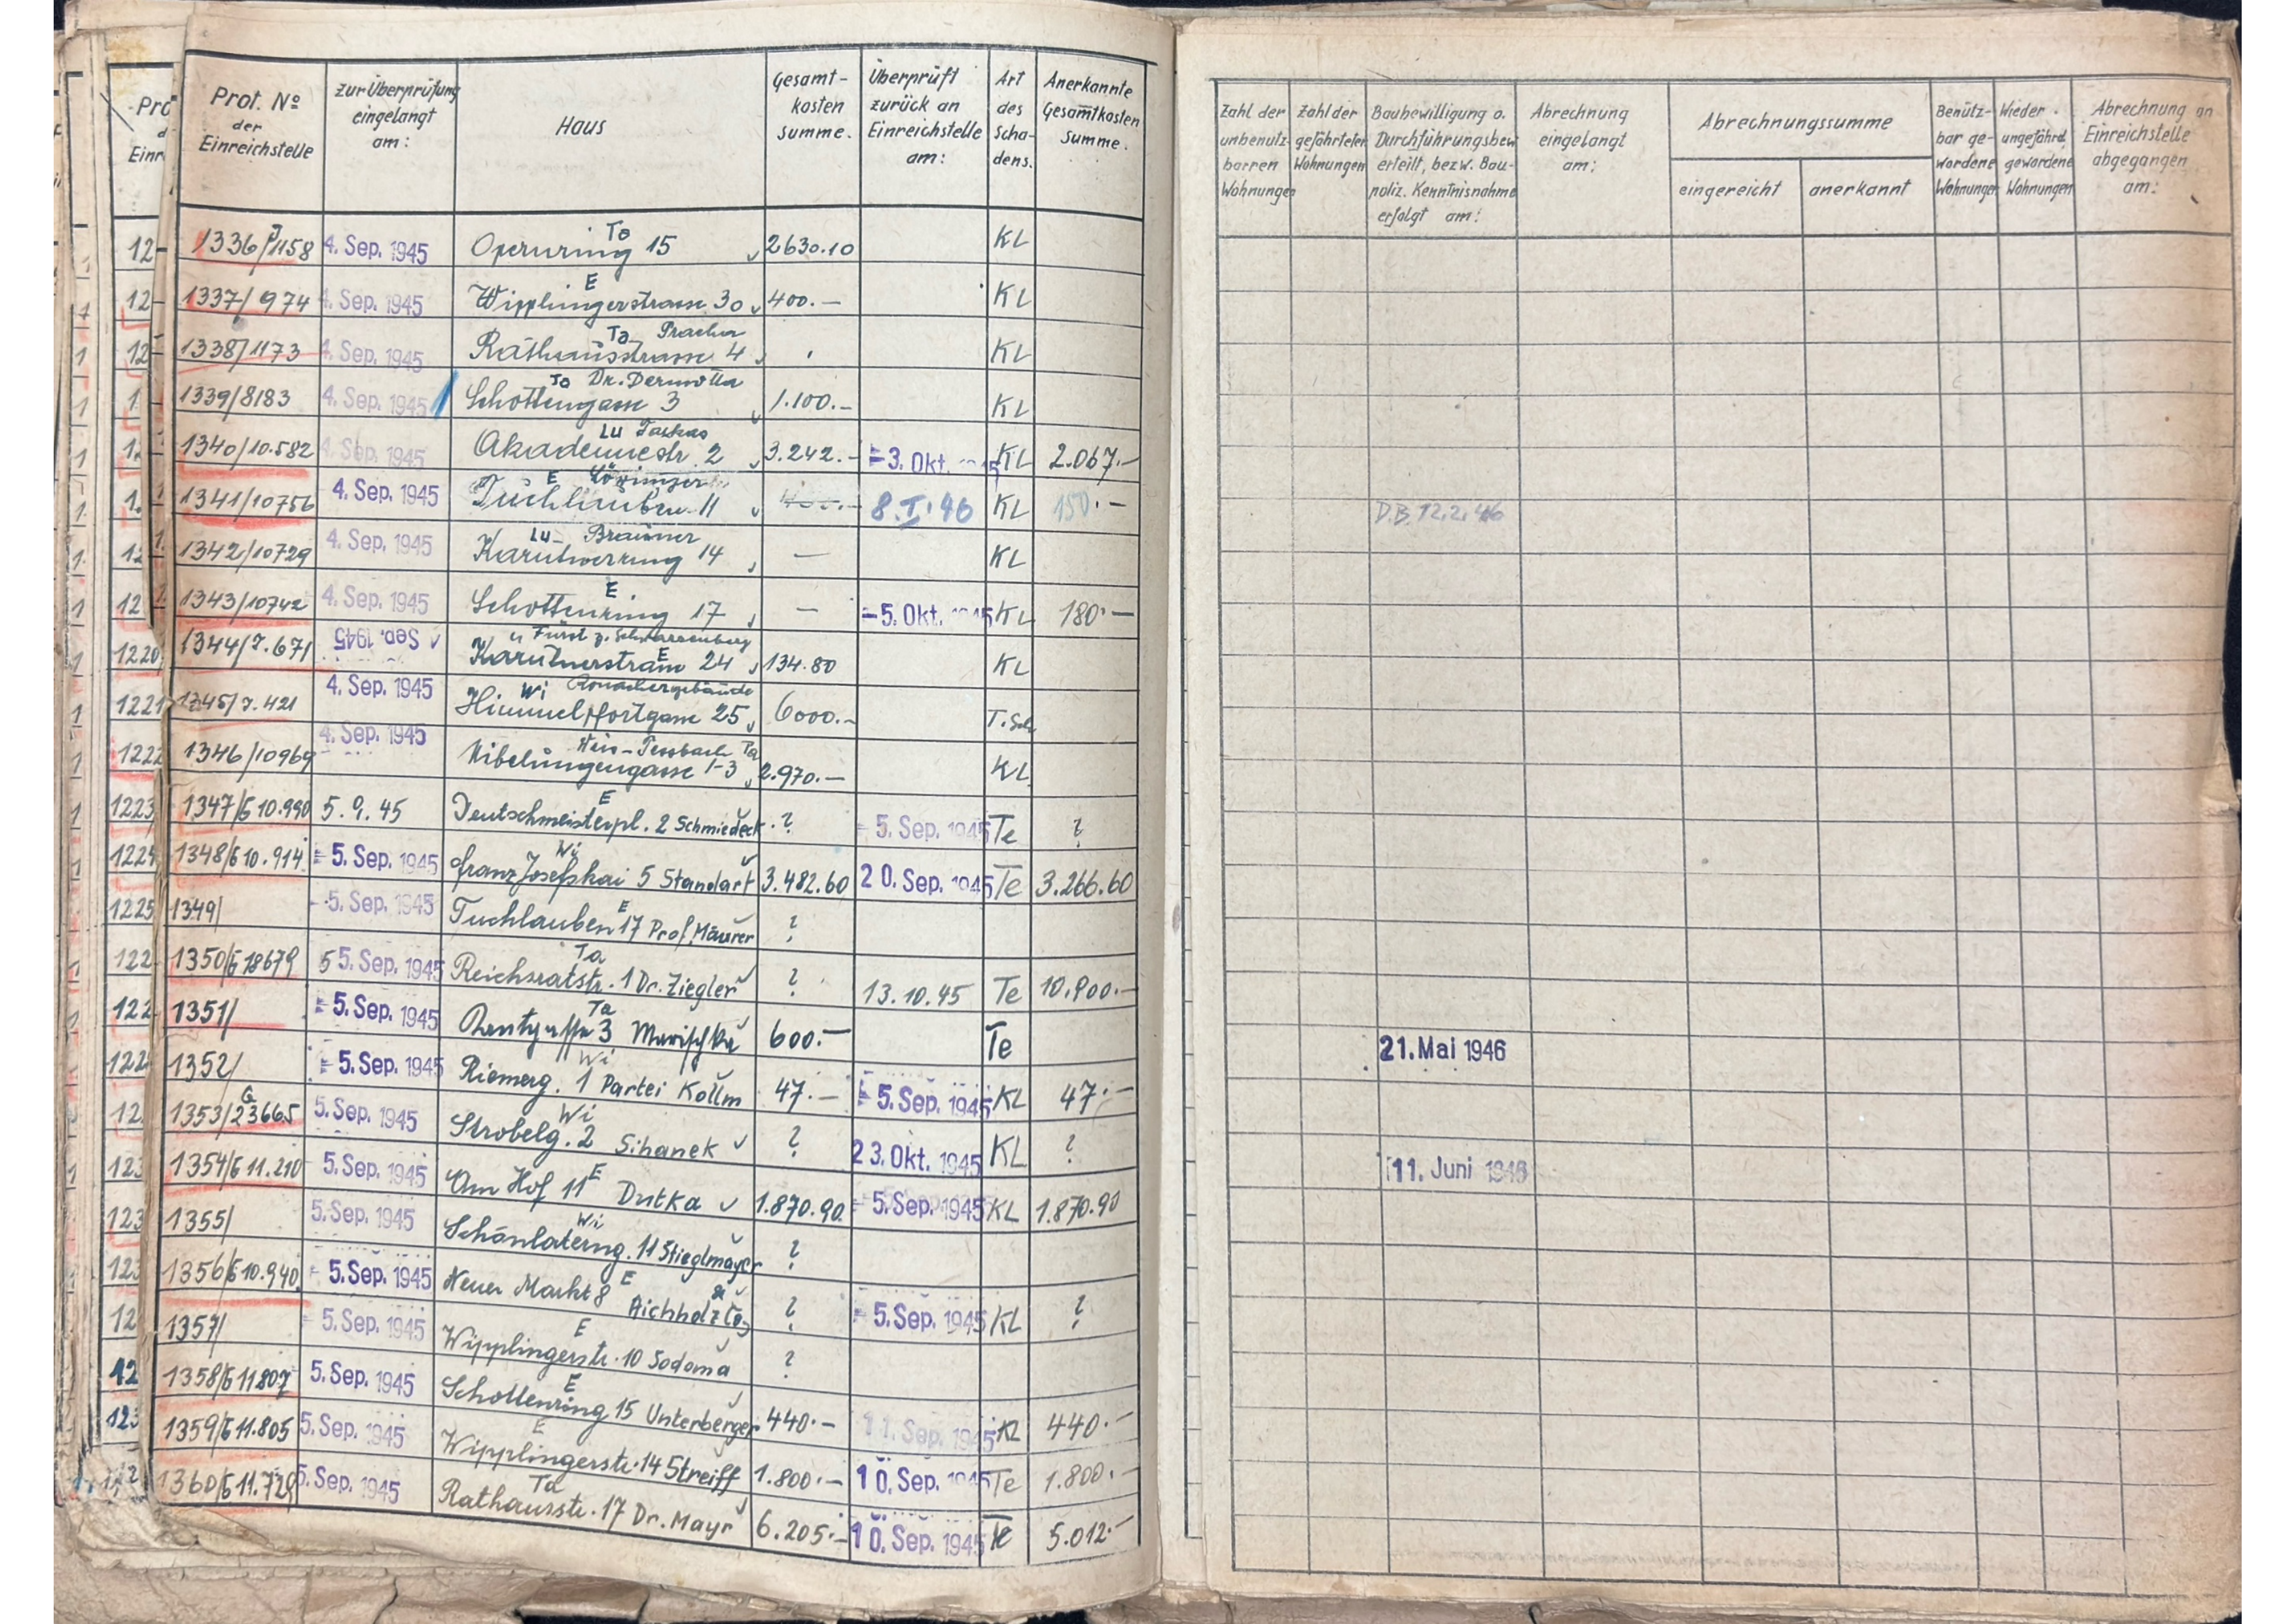 Prot. No der Einreichstelle | zur Überprüfung eingelangt am: | Haus | Gesamt-kosten summe. | Überprüft zurück an Einreichstelle am: | Art des Scha-dens. | Anerkannte Gesamtkosten Summe.
Zahl der unbenutz-barren Wohnungen | Zahl der gefährteten Wohnungen | Baubewilligung o. Durchführungsbew erteilt, bezw. Bau-poliz. Kenntnisnahme erfolgt am: | Abrechnung eingelangt am: | Abrechnungssumme eingereicht anerkannt | Benütz-bar ge-wordene Wohnungen | Wieder ungefährd. gewordene Wohnungen | Abrechnung an Einreichstelle abgegangen am:
1336/J1158 4. Sep. 1945 Opernring 15 Ta 2630.10 KL
1337/974 4. Sep. 1945 Wipplingerstrasse 30 E 400.— KL
1338/1173 4. Sep. 1945 Rathausstrasse 4 Ta KL
1339/8183 4. Sep. 1945 Schottengasse 3 Ta Dr. Dermotta 1.100.— KL
1340/10.582 4. Sep. 1945 Akademiestr. 2 Lu 3.242.— 3. Okt. 1945 KL 2.067.—
1341/10756 4. Sep. 1945 Tuchlauben 11 E 8.I.46 KL 150.— D.B. 12.2.46
1342/10729 4. Sep. 1945 Kärntnerring 14 Lu — KL
1343/10742 4. Sep. 1945 Schottenring 17 E — 5. Okt. 1945 KL 180.—
1344/J.671 Sep. 1945 Kärtnerstrasse 24 E Fürst z. Schwarzenberg 134.80 KL
1345/J.421 4. Sep. 1945 Himmelpfortgasse 25 Wi Ronachergebäude 6000.— T.Sch
1346/10969 4. Sep. 1945 Nibelungengasse 1-3 Ta 2.970.— KL
1347/G10.990 5.9.45 Deutschmeisterpl. 2 Schmiedeck E ? 5. Sep. 1945 Te ?
1348/G10.914 5. Sep. 1945 Franz Josefskai 5 Standart Wi 3.482.60 20. Sep. 1945 Te 3.266.60
1349/ 5. Sep. 1945 Tuchlauben 17 Prof. Maurer E ?
1350/G18679 5 5. Sep. 1945 Reichsratstr. 1 Dr. Ziegler Ta ? 13.10.45 Te 10.900.—
1351/ 5. Sep. 1945 3 Marischka Ta 600.— Te 21. Mai 1946
1352/ 5. Sep. 1945 Riemerg. 1 Partei Kollm Wi 47.— 5. Sep. 1945 KL 47.—
1353/G23665 5. Sep. 1945 Strobelg. 2 Sihanek Wi ? 23. Okt. 1945 KL ? 11. Juni 1946
1354/G11.210 5. Sep. 1945 Am Hof 11 Dutka E 1.870.90 5. Sep. 1945 KL 1.870.90
1355/ 5. Sep. 1945 Schönlaterng. 11 Stieglmayer Wi ?
1356/G10.940 5. Sep. 1945 Neuer Markt 8 E ? 5. Sep. 1945 KL ?
1357/ 5. Sep. 1945 Wipplingerstr. 10 Sodoma E ?
1358/G11807 5. Sep. 1945 Schottenring 15 Unterberger E 440.— 11. Sep. 1945 KL 440.—
1359/G11.805 5. Sep. 1945 Wipplingerstr. 14 Streiff E 1.800.— 10. Sep. 1945 Te 1.800.—
1360/G11.729 5. Sep. 1945 Rathausstr. 17 Dr. Mayr Ta 6.205.— 10. Sep. 1945 Te 5.012.—
1220
1221
1222
1223
1224
1225